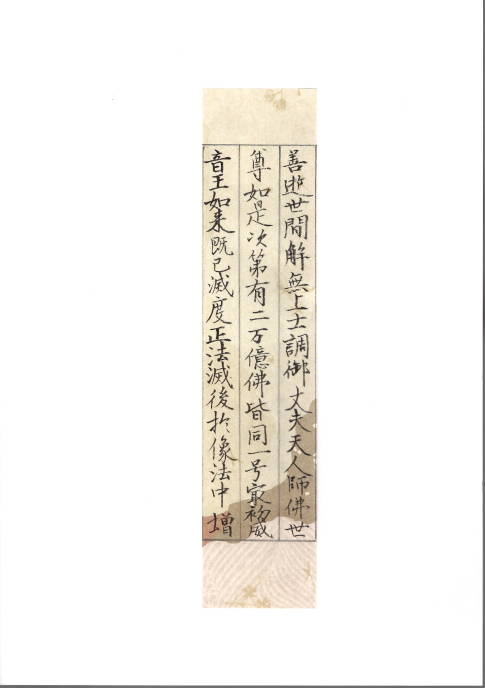 善逝世間解無上士調御丈夫天人師佛世
尊如是次第有二万億佛皆同一号㝡初威
音王如来既已滅度正法滅後於像法中增